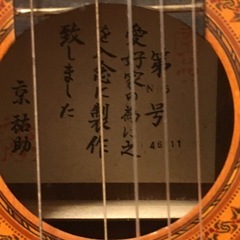 第 号
No.5
46 11
愛好家の為に之
を入念に製作
致しました
京祐助